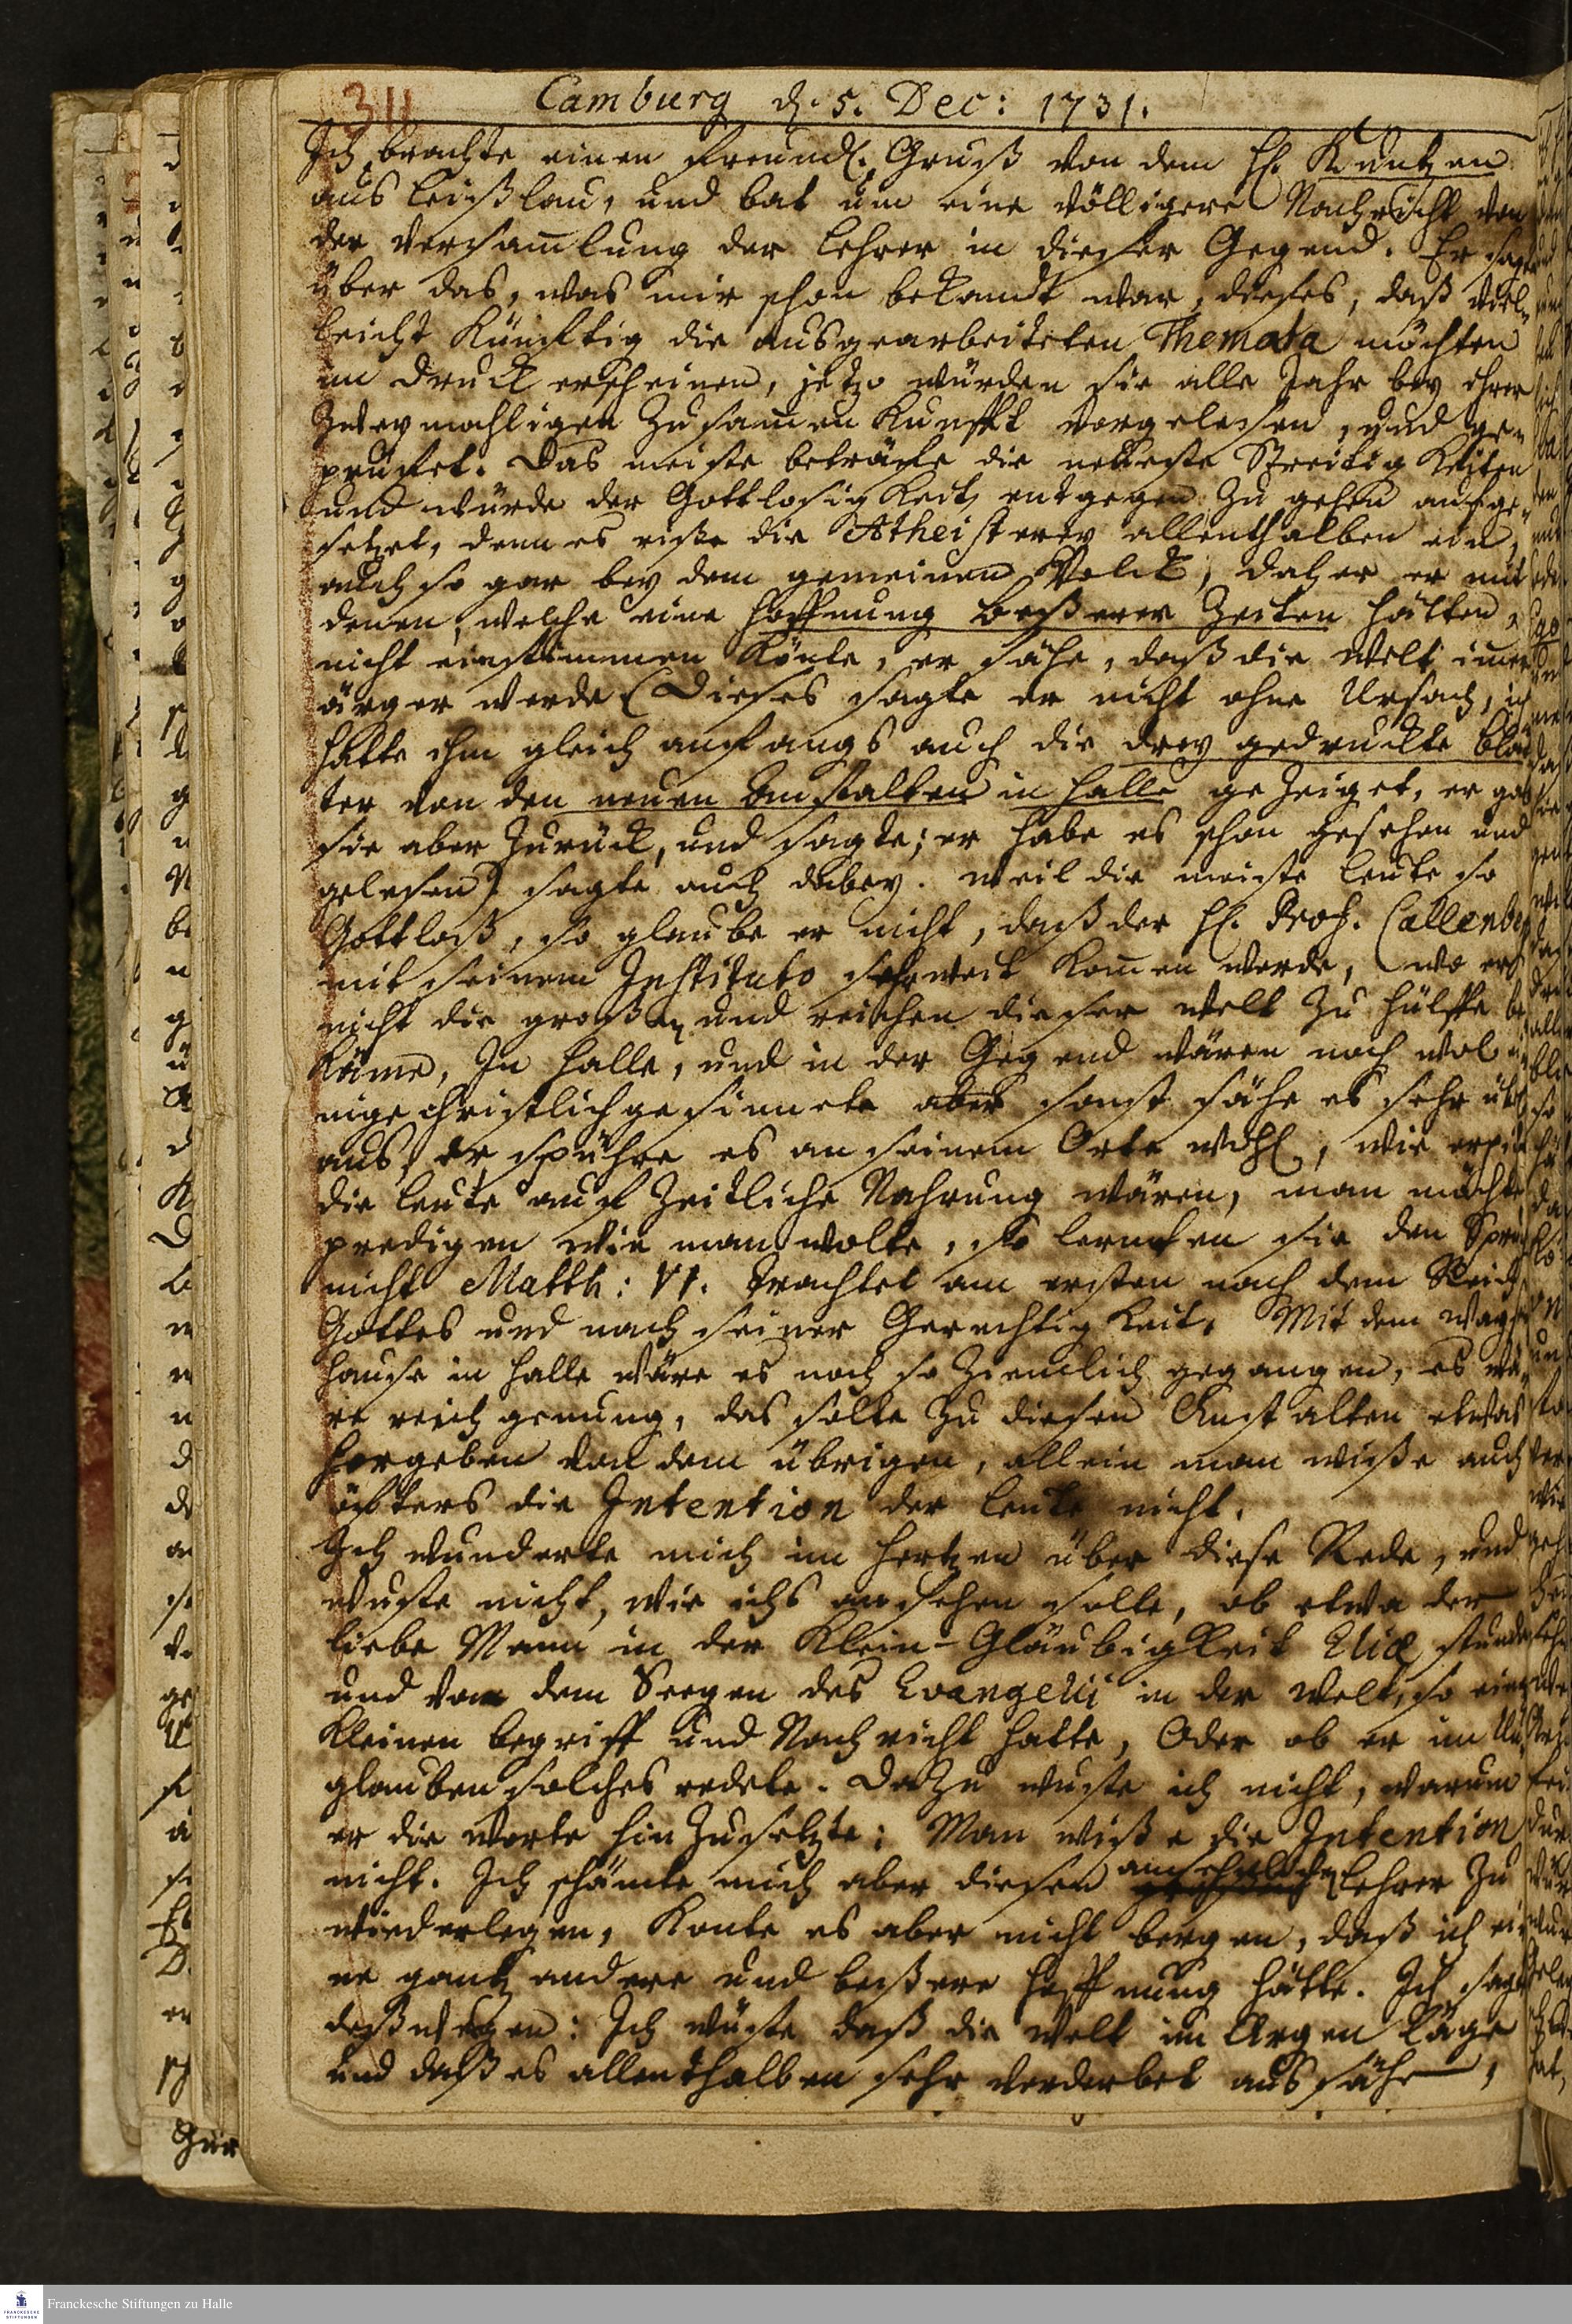 311
Camburg d. 5. Dec: 1731.
Ich brachte einen freundl. Gruß von dem H. Kuntzen
aus Leißlau, und bat um eine völligere Nachricht von
der versamlung der Lehrer in dieser Gegend. Er sagte
über das, was mir schon bekandt war, dieses, daß viel-
leicht künfftig die ausgearbeiteten Themata möchten
im druck erscheinen, jetzo würden sie alle Jahr bey ihrer
zweymahligen Zusammen Kunfft vorgelesen, und ge-
prüfet. Das meiste beträfe die neueste Streitigkeiten
und würde der Gottlosigkeit entgegen zu gehen aufge-
setzet, denn es riße die Atheisterey allenthalben ein,
auch so gar bey dem gemeinen Volck, daher er mit
denen, welche eine Hoffnung beßerer Zeiten hätten,
nicht einstimmen könte, er sähe, daß die Welt immer
ärger werde (Dieses sagte er nicht ohne Ursach, ich
hatte ihm gleich anfangs auch die drey gedruckte Blät
ter von den neuen Anstalten in Halle gezeiget, er gab
sie aber zurück, und sagte; er habe es schon gesehen und
gelesen) sagte auch dabey. weil die meiste Leute so
Gottloß, so glaube er nicht, daß der H. Prof. Callenberg
mit seinem Instituto sehr weit kommen werde, wo er
nicht die großen und reichen dieser Welt zu hülffe be
käme, In Halle, und in der Gegend wären noch wol
nige christlich gesinnete aber sonst sähe es sehr übel
aus, er spühre es an seinem Orte wohl, wie erpicht
die Leute auf zeitliche Nahrung wären, man möchte
predigen wie man wolte, so lerneten sie den Spruch
nicht Matth: VI. Trachtet am ersten nach dem Reich
Gottes und nach seiner Gerechtigkeit. Mit dem Waysen
hause in Halle wäre es noch so ziemlich gegangen, es wä-
re reich genung, das solte zu diesen Anstalten etwas
hergeben von dem übrigen, allein man wiße auch
öffters die Intention der Leute nicht.
Ich wunderte mich im Hertzen über diese Rede, und
wuste nicht, wie ichs ansehen solle, ob etwa der
liebe Mann in der Klein-Gläubigkeit Eliæ stunde
und von dem Seegen des Evangelii in der Welt, so einen
kleinen begriff und Nachricht hatte, Oder ob er im Un-
glauben solches redete. Dazu wuste ich nicht, warum
er die Worte hinzusetzte: Man wiße die Intention
nicht. Ich schämte mich aber diesen ansehnlichen Lehrer zu
wiederlegen, konte es aber nicht bergen, daß ich ei-
ne gantz andere und beßere Hoffnung hätte. Ich sagte
deßwegen: Ich wüste daß die Welt im Argen läge
und daß es allenthalben sehr verderbet aus sähe,
Franckesche Stiftungen zu Halle